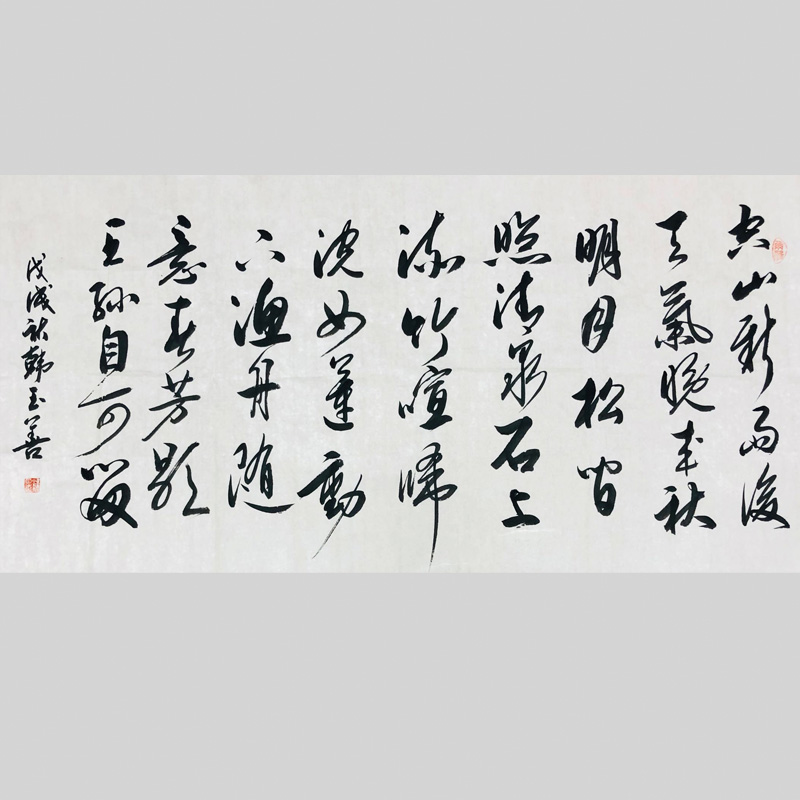 空山新雨後
天氣晚来秋
明月松間
照清泉石上
流竹喧歸
浣女蓮動
下漁舟随
意春芳歇
王孫自可留
戊戌秋韓玉善